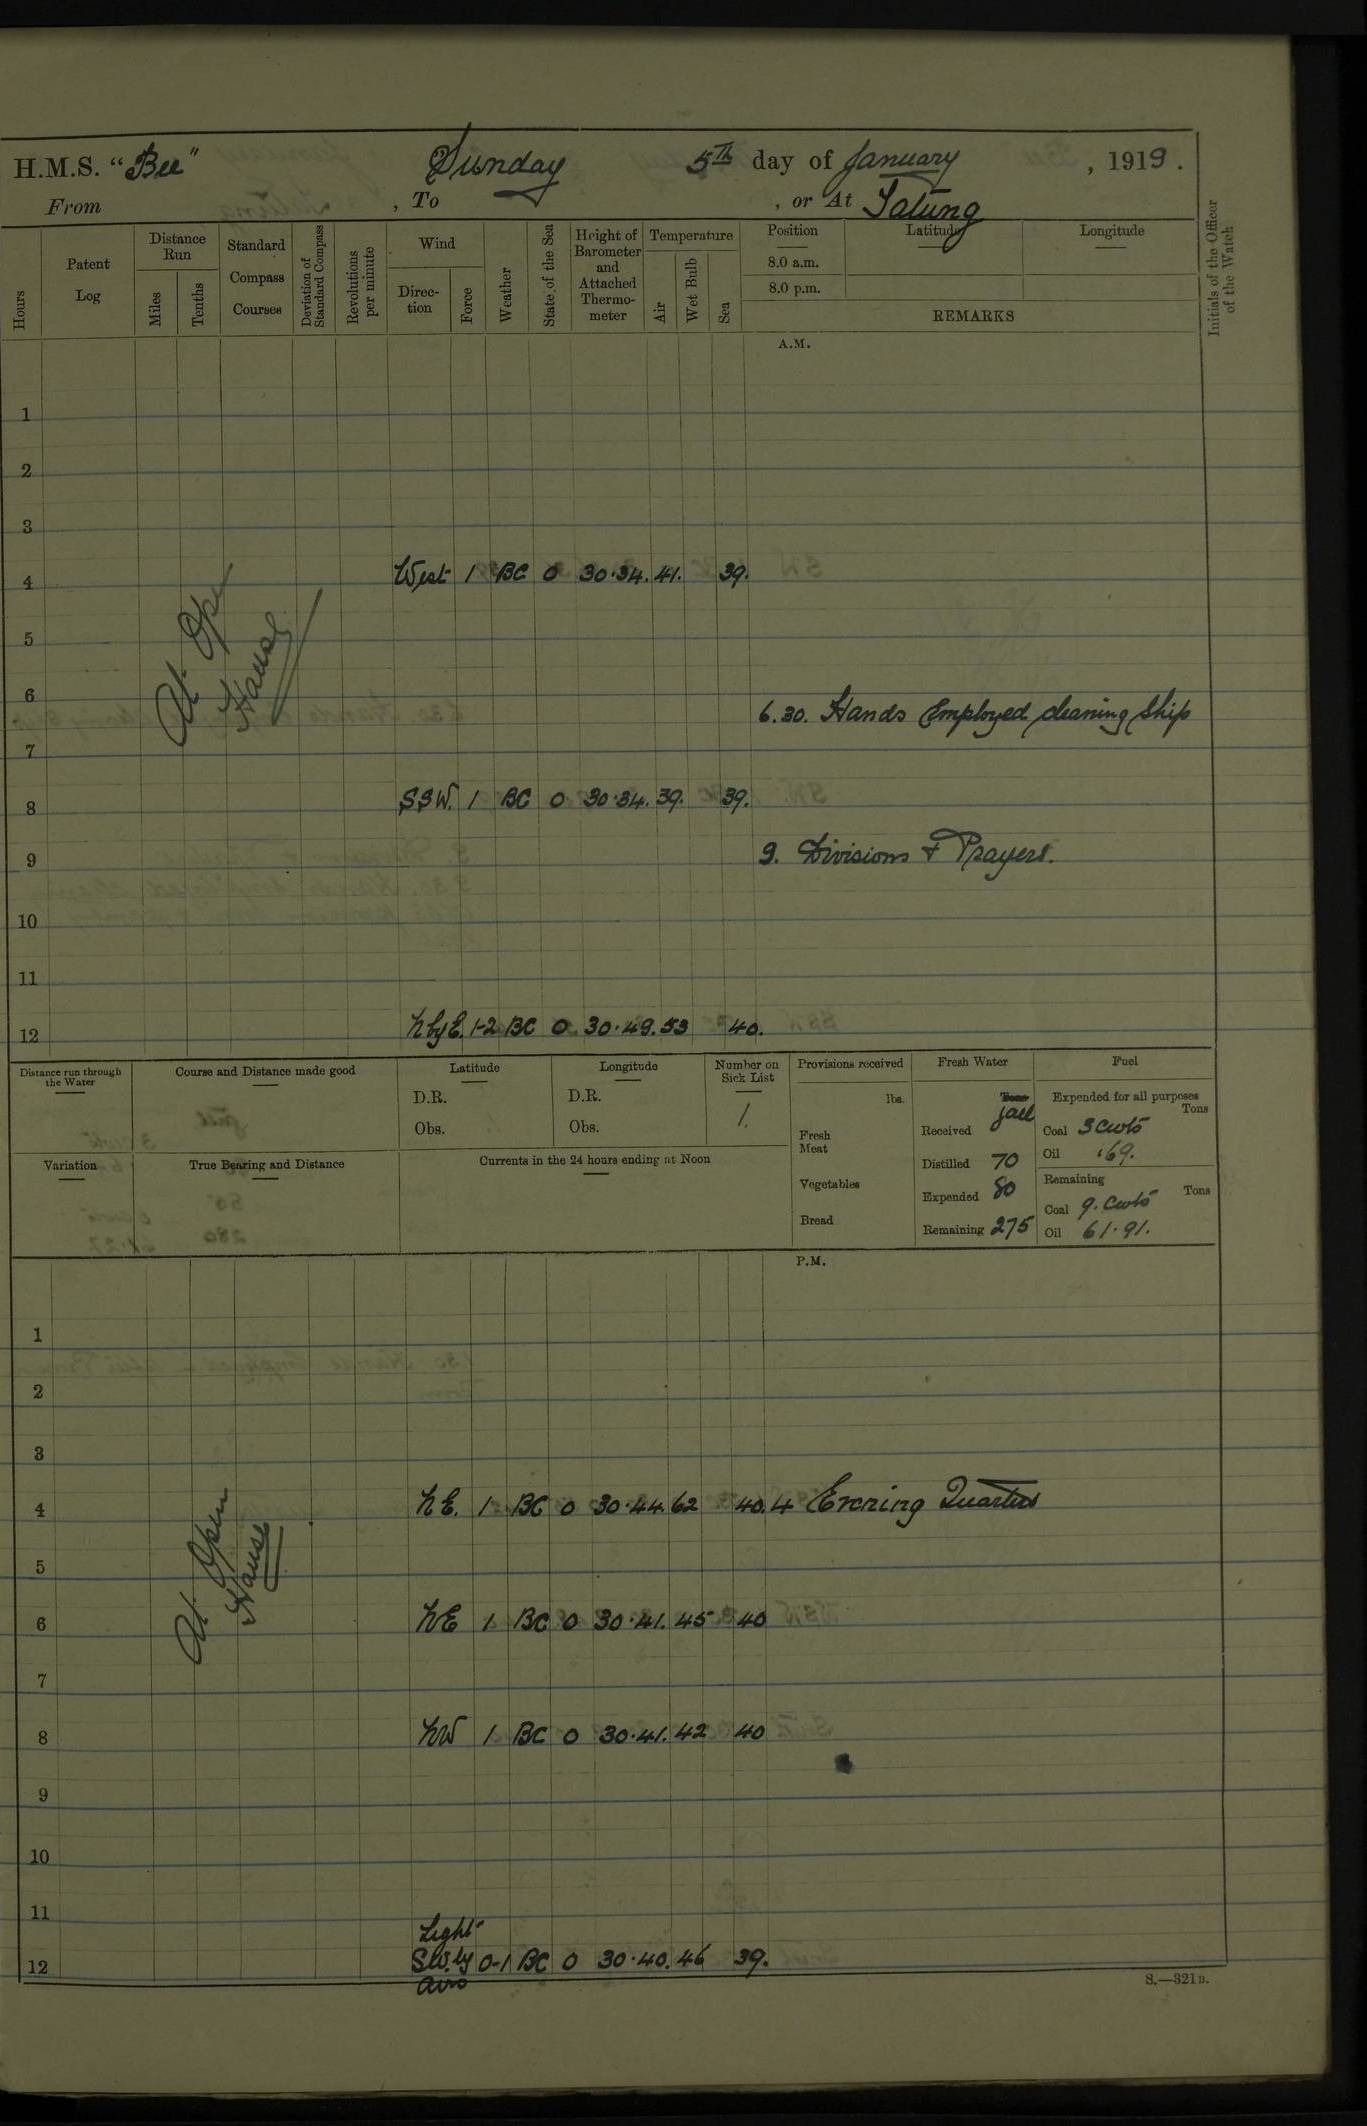 H.M.S. "Bee" Sunday 5th day of January, 1919.
From , To , or At Tatung
Hours
Patent Log
Distance Run
Miles
Tenths
Standard Compass Courses
Deviation of Standard Compass
Revolutions per minute
Wind
Direction
Force
Weather
State of the Sea
Height of Barometer and Attached Thermometer
Temperature
Air
Wet Bulb
Sea
Position
8.0 a.m.
8.0 p.m.
Latitude
Longitude
REMARKS
Initials of the Officer of the Watch
A.M.
1
2
3
4 West 1 BC 0 30.34. 41. 39.
At Open
Hause
5
6
6.30. Hands Employed cleaning Ship
7
8 SSW. 1 BC 0 30.34. 39. 39.
9 9. Divisions & Prayers.
10
11
12 N by E. 1-2 BC 0 30.49. 53 40.
Distance run through the Water
Course and Distance made good
Latitude
D.R.
Obs.
Longitude
D.R.
Obs.
Number on Sick List
1.
Variation
True Bearing and Distance
Currents in the 24 hours ending at Noon
Provisions received
lbs.
Fresh Meat
Vegetables
Bread
Fresh Water
Tons
Received
Distilled 70
Expended 80
Remaining 275
Fuel
Expended for all purposes
Tons
Coal 3 cwts
Oil .69.
Remaining
Tons
Coal 9. Cwts
Oil 61.91.
P.M.
1
2
3
4 NE. 1 BC 0 30.44. 62 40. 4 Evening Quarters
At Open
Hause
5
6 NE 1 BC 0 30.41. 45 40
7
8 NW 1 BC 0 30.41. 42 40
9
10
11
Light
12 SW.ly 0-1 BC 0 30.40. 46 39.
airs
S.—321B.